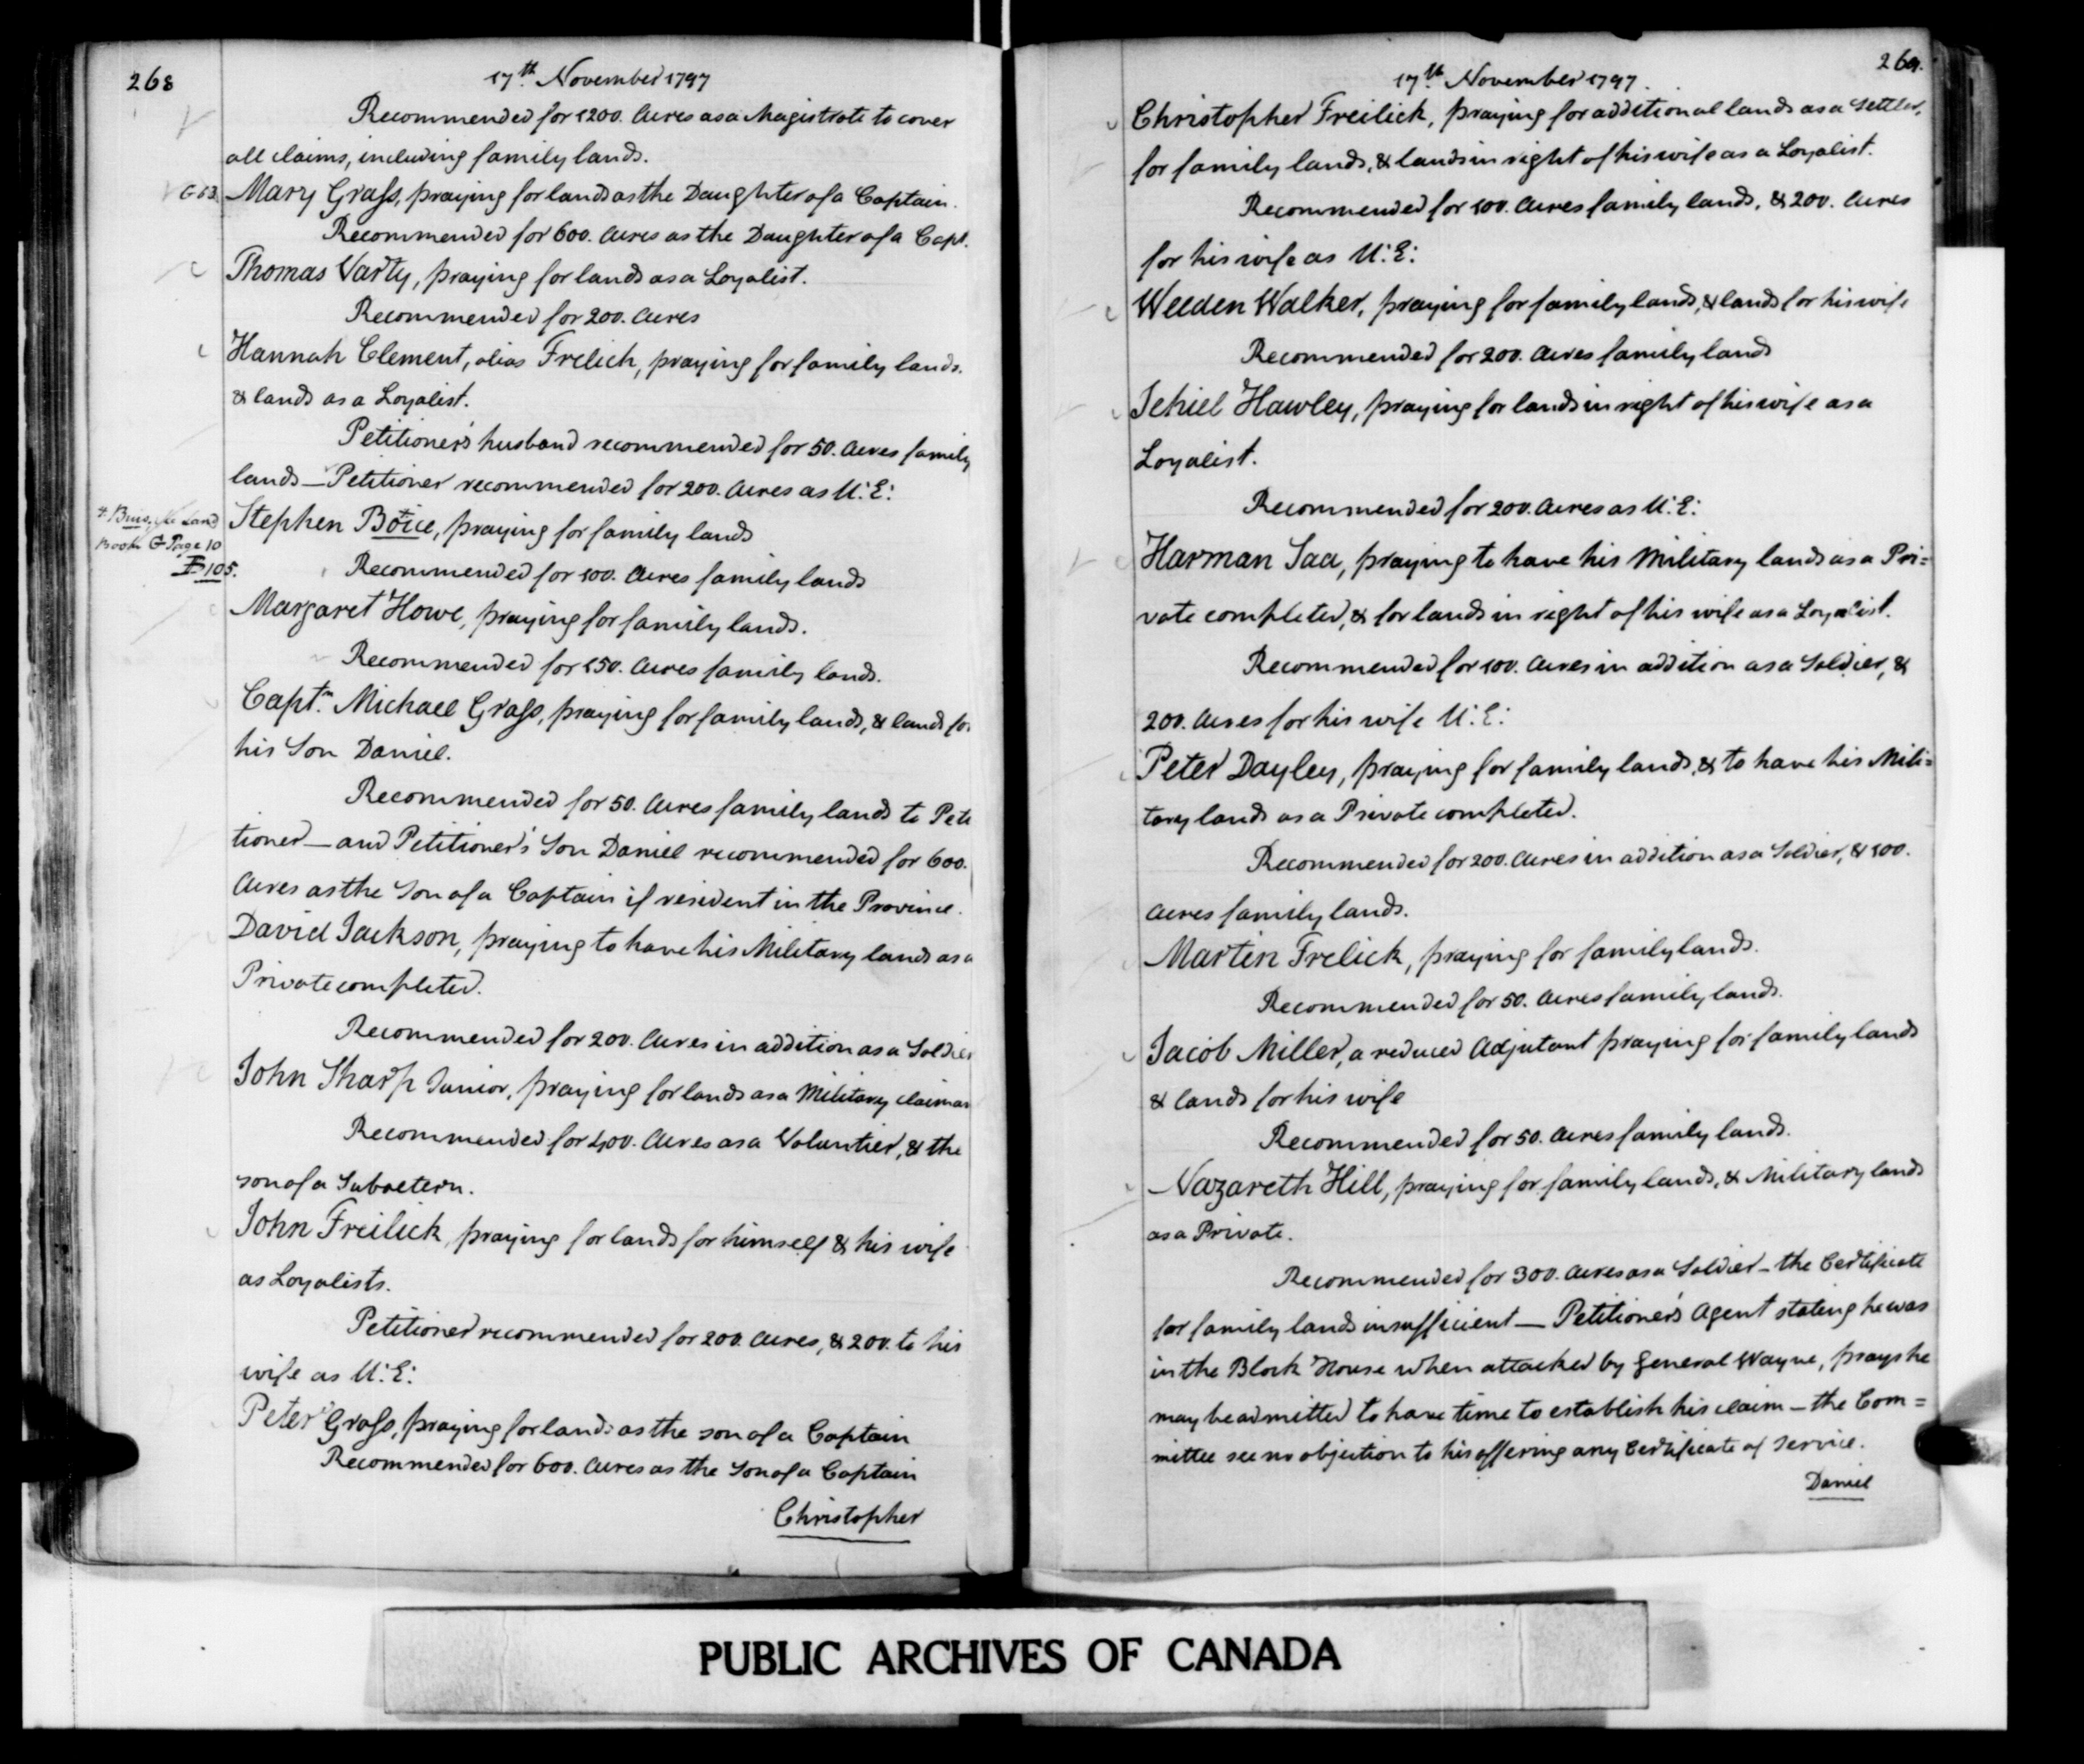 268
17th November 1797
Recommended for 1200. Acres as a Magistrate to cover
all claims, including family lands.
G 63. Mary Grass, praying for lands as the Daughter of a Captain.
Recommended for 600. Acres as the Daughter of a Capt.
Thomas Varty, praying for lands as a Loyalist.
Recommended for 200. Acres
Hannah Clement, alias Frelich, praying for family lands.
& lands as a Loyalist.
Petitioner's husband recommended for 50. Acres family
lands — Petitioner recommended for 200. Acres as U.E:
Land
Book G Page 10
105.
Stephen Boice, praying for family lands
Recommended for 100. Acres family lands
Margaret Howe, praying for family lands.
Recommended for 150. Acres family lands.
Captn. Michael Grass, praying for family lands, & lands for
his Son Daniel.
Recommended for 50. Acres family lands to Peti
tioner — and Petitioner's Son Daniel recommended for 600.
Acres as the Son of a Captain if resident in the Province.
David Jackson, praying to have his Military lands as a
Private completed.
Recommended for 200. Acres in addition as a Soldier
John Sharp Junior, praying for lands as a Military claiman
Recommended for 400. Acres as a Voluntier, & the
son of a Subaltern.
John Freilick, praying for lands for himself & his wife
as Loyalists.
Petitioner recommended for 200. Acres, & 200. to his
wife as U.E:
Peter Grass, praying for lands as the son of a Captain
Recommended for 600. Acres as the Son of a Captain
Christopher
269.
17th November 1797.
Christopher Freilick, praying for additional lands as a Settler,
for family lands, & lands in right of his wife as a Loyalist.
Recommended for 100. Acres family lands, & 200. Acres
for his wife as U.E:
Weeden Walker, praying for family lands, & lands for his wife
Recommended for 200. Acres family lands
Jehiel Hawley, praying for lands in right of his wife as a
Loyalist.
Recommended for 200. Acres as U.E:
Harman Saa, praying to have his Military lands as a Pri=
vate completed, & for lands in right of his wife as a Loyalist.
Recommended for 100. Acres in addition as a Soldier, &
200. Acres for his wife U.E:
Peter Dayley, praying for family lands, & to have his Mili=
tary lands as a Private completed.
Recommended for 200. Acres in addition as a Soldier, & 100.
Acres family lands.
Martin Frelick, praying for family lands.
Recommended for 50. Acres family lands.
Jacob Miller, a reduced Adjutant praying for family lands
& lands for his wife
Recommended for 50. Acres family lands.
Nazareth Hill, praying for family lands, & Military lands
as a Private.
Recommended for 300. Acres as a Soldier — the Certificate
for family lands insufficient — Petitioner's Agent stating he was
in the Block House when attacked by General Wayne, prays he
may be admitted to have time to establish his claim — the Com=
mittee see no objection to his offering any Certificate of Service.
Daniel
PUBLIC ARCHIVES OF CANADA